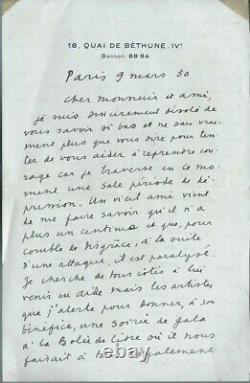 18, QUAI DE BÉTHUNE. IVe
Danton 88-94
Paris 9 mars 50
Cher monsieur et ami,
je suis sincèrement désolé de
vous savoir si bas et ne sais vrai-
ment plus que vous dire pour ten-
ter de vous aider à reprendre cou-
rage car je traverse en ce mo-
ment une sale période de dé-
pression. Un vieil ami vient
de me faire savoir qu'il n'a
plus un centime et que, pour
comble de disgrâce, à la suite
d'une attaque, il est paralysé.
Je cherche de tous côtés à lui
venir en aide mais les artistes
que j'alerte pour donner, à son
bénéfice, une soirée de gala
à la Boîte de où il nous
faisait à également